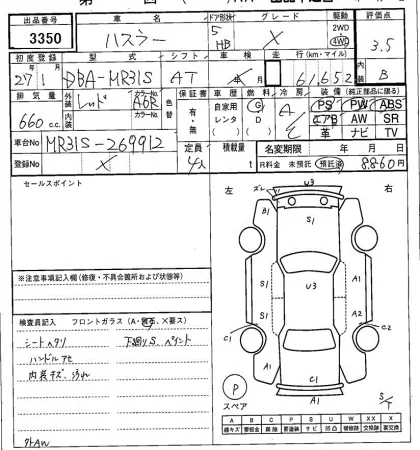 出品番号 車名 ドア形状 グレード 駆動 評価点
3350 ハスラー 5 HB X 2WD 4WD 3.5
初度登録 型式 シフト 車検 走行(km・マイル) 内装
27年 1月 DBA-MR31S AT 年 月 61,652 B
排気量 外装 カラーNo. 色替 保証書 車歴 燃料 冷房 装備(純正部品に限る)
660 c.c. レッド A0R 有・無 自家用 レンタ G D A PS PW ABS
内装 カラーNo. エアB AW SR
革 ナビ TV
車台No MR31S-269912 定員 積載量 名変期限 年 月 日
登録No X 4人 t R料金 未預託 預託済 8,860円
セールスポイント
左 右
ズレ U3
B1 S1
A1
S1 U3 A1
S1 A2
C1 C2
A1 C1 A1
P
スペア
S/T
※注意事項記入欄(修復・不具合箇所および状態等)
検査員記入 フロントガラス(A・飛石、×要ス)
シートヘタリ 下廻りS、ペイント
ハンドルアセ
内装キズ、汚れ
外AW
A B C P S U W XX X
線キズ 要板金 腐蝕 要塗装 サビ 凹凸 補修跡 交換跡 要交換